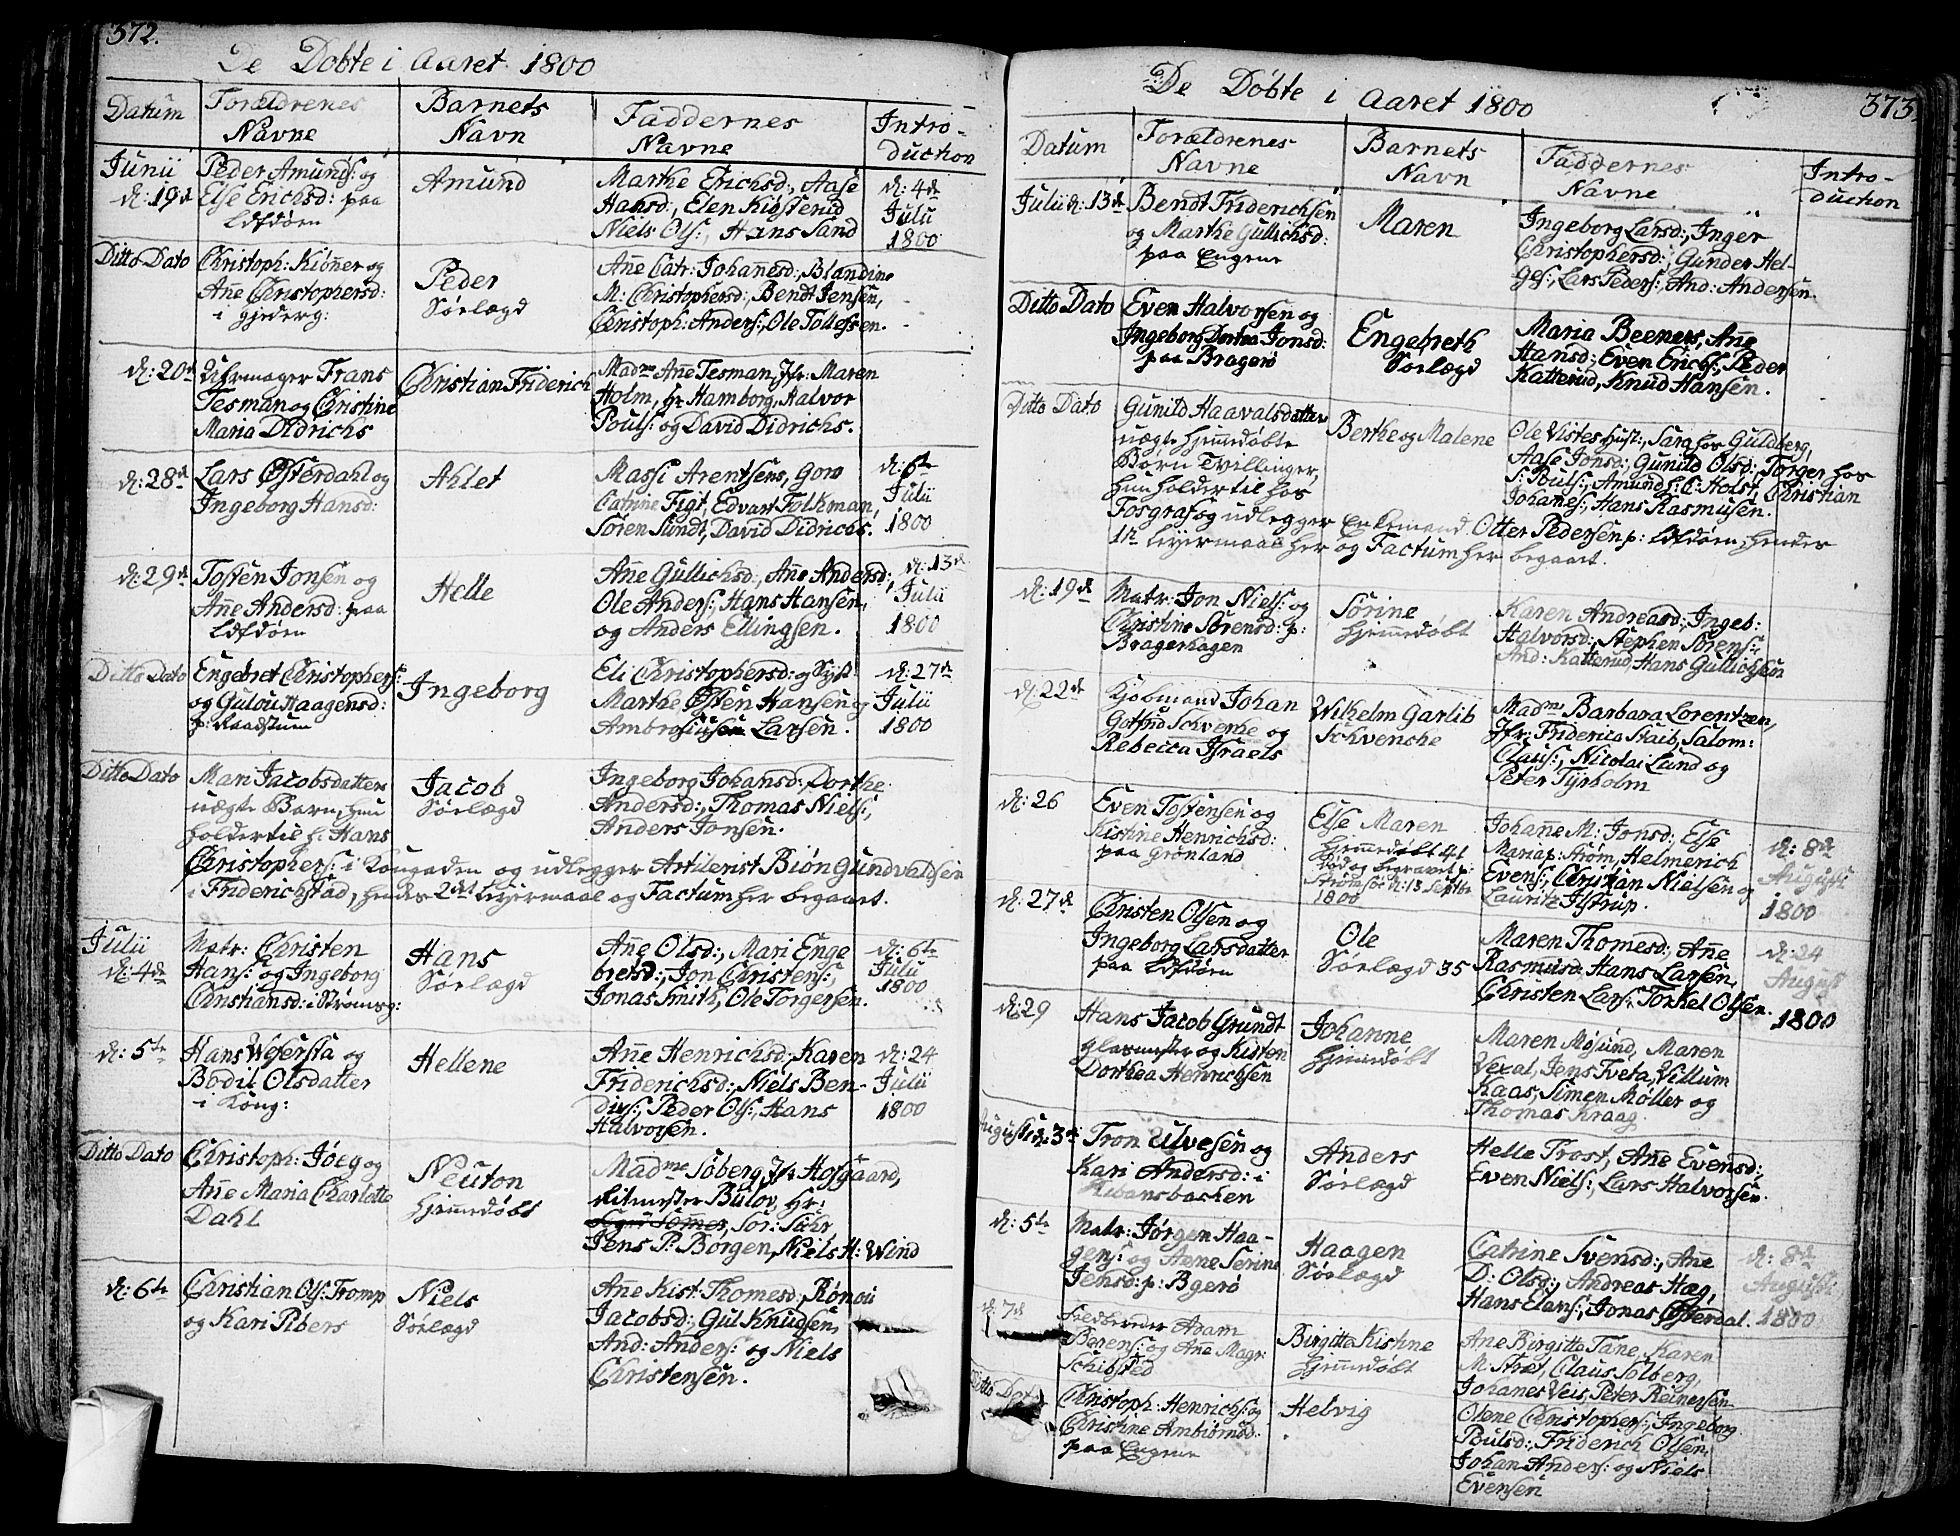 372.
De Døbte i Aaret 1800
Datum
Forældrenes
Navne
Barnets
Navn
Faddernes
Navne
Intro-
duction
Junii
d: 19de
Peder Amunds: og
Else Erichsd: paa
Ldfdørn
Amund
Marthe Erichsd:, Aase
Hansd:, Elen Kirsterud
Niels Ols:, Hans Sand
d: 4de
Julii
1800
Ditto Dato
Christoph: Kiønner og
Ane Christophersd:
i Gjederg:
Peder
Sørlægd
Ane Catr: Johannesd:, Blandine
M: Christophersd:, Bendt Jensen,
Christoph: Anders:, Ole Tollefsen.
d: 20de
Uhrmager Frans
Tesman og Christine
Maria Didrichs
Christian Friderich
Madme Ane Tesman, Jfr: Maren
Holm, Hr Hamborg, Halvor
Pouls: og David Didrichs.
d: 28de
Lars Østerdahl og
Ingeborg Hansd:
Ahlet
Massi Arentsens, Goro
Catrine Figt, Edvart Folkman,
Søren Sundt, David Didrichs.
d: 6te
Julii
1800
d: 29de
Tosten Jonsen og
Ane Andersd: paa
Ldfdørn
Helle
Ane Gullichsd:, Ane Andersd:,
Ole Anders:, Hans Hansen,
og Anders Ellingsen.
d: 13de
Julii
1800
Ditto Dato
Engebret Christophers:
og Gulou Haagensd:
p: Raadstuen
Ingeborg
Eli Christophersd: og Syst:
Marthe Østen Hansen og
Ambrosius Larsen.
d: 27de
Julii
1800
Ditto Dato
Mari Jacobsdatter
uægte Barn, hun
holder til h: Hans
Christophers: i Kongaden og udlegger Artilerist Biøn Gundvaldsen
i Friderichstad, hendes 2det leyermaal og Factum her begaaet.
Jacob
Sørlægd
Ingeborg Johansd:, Dorthe
Andersd:, Thomas Niels:,
Anders Jonsen.
Julii
d: 4de
Matr: Christen
Hans: og Ingeborg
Christiansd: i Strømsg:
Hans
Sørlægd
Ane Olsd:, Mari Enge
bretsd:, Jon Christens:,
Jonas Smith, Ole Torgersen.
d: 6te
Julii
1800
d: 5te
Hans Wefersta og
Bodil Olsdatter
i Kong:
Hellene
Ane Henrichsd:, Karen
Friderichsd:, Niels Ben-
dixs:, Peder Ols:, Hans
Halvorsen.
d: 24
Julii
1800
Ditto Dato
Christoph: Jøeg og
Ane Maria Charlotte
Dahl
Neuton
Hjemmedøbt
Madme Søberg, Jfr Hofgaard,
Ritmester Bülov, Hr:
Sømes, Sør: Suhr,
Jens P: Børgen, Niels H: Wind
d: 6te
Christian Ols: Tromp
og Kari Pibers
Niels
Sørlægd
Ane Kist: Thomesd:, Rønou
Jacobsd:, Gul Knudsen,
And: Anders: og Niels
Christensen.
373.
De Døbte i Aaret 1800
Datum
Forældrenes
Navne
Barnets
Navn
Faddernes
Navne
Intro-
duction
Julii d: 13de
Bendt Friderichsen
og Marthe Gullichsd:
paa Engene
Maren
Ingeborg Larsd:, Inger
Christophersd:, Gunder Hel-
ges:, Lars Peders:, And: Andersen.
Ditto Dato
Even Halvorsen og
Ingeborg Dorthea Jonsd:
paa Bragerø
Engebreth
Sørlægd
Maria Beeners, Ane
Hansd:, Even Erichs:, Peder
Katterud, Knud Hansen.
Ditto Dato
Gunild Haavalsdatter
uægte hjemmedøbte
Børn Tvillinger,
hun holder til hos
Fosgraf og udlegger Enkemand Otter Pedersen p: Ldfdørn, hendes
1te leyermaal her og Factum her begaaet.
Berthe og Malene
Ole Vistes Hust:, Sara hos Guldberg,
Aase Jonsd:, Gunild Olsd:, Torger hos
S: Pouls:, Amund h: C: Holst, Christian
Johanes:, Hans Rasmusen.
d: 19de
Matr: Jon Niels: og
Christine Sørensd: p:
Bragerhagen
Sørine
Hjemmedøbt
Karen Andreasd:, Ingeb:
Halvorsd:, Stephen Sørens:
And: Katterud, Hans Gullichsen
d: 22de
Kjøbmand Johan
Gotfrid Schvenke og
Rebecca Israels
Wilhelm Garlib
Schvencke
Madme Barbara Lorentzen,
Jfr: Friderica Staib, Salom:
Claus:, Nicolai Lund og
Peter Tyrholm
d: 26
Even Tostensen og
Kistine Henrichsd:
paa Grønland
Else Maren
Hjemmedøbt 41
Død og begravet p:
Strømsøe d: 13 Septbr
1800
Johane M: Jonsd:, Else
Maria p: Strøm, Helmerich
Evens:, Christian Nielsen og
Lauritz Istrup.
d: 8de
Augusti
1800
d: 27de
Christen Olsen og
Ingeborg Larsdatter
paa Ldfdørn
Ole
Sørlægd 35
Maren Thomesd:, Ane
Rasmusd: Hans Larsen,
Christen Lars:, Torkel Olsen.
d: 24
Augusti
1800
d: 29
Hans Jacob Grundt
glasmester og Kisten
Dorthea Henrichsen
Johanne
Hjemmedøbt
Maren Møsund, Maren
Vexal, Jens Tveta, Villum
Kaas, Simen Møller og
Thomas Kraag.
Augusti d: 3de
Tron Ulvesen og
Kari Andersd: i
Hibansbachen
Anders
Sørlægd
Helle Trost, Ane Evensd:
Even Niels:, Lars Halvorsen.
d: 5te
Matr: Jørgen Haa-
gens: og Anne Serine
Jensd: p: Bgerø
Haagen
Sørlægd
Catrine Svensd:, Ane
D: Olsd:, Andreas Hæg,
Hans Elans:, Jonas Østerdal.
d: 8de
Augusti
1800
d: 7de
Adam
Berens: og Ane Magr:
Schibsted
Birgitta Kistine
Hjemmedøbt
Ane Birgitta Tane, Karen
M: Strøt, Claus Solberg,
Johanes Veis, Peter Reinersen
Ditto Dat
Christoph: Henrichs: og
Christine Ambiørnsd:
paa Engene
Helvig
Olene Christophers:, Ingeborg
Poulsd:, Friderich Olsen,
Johan Anders: og Niels
Evensen